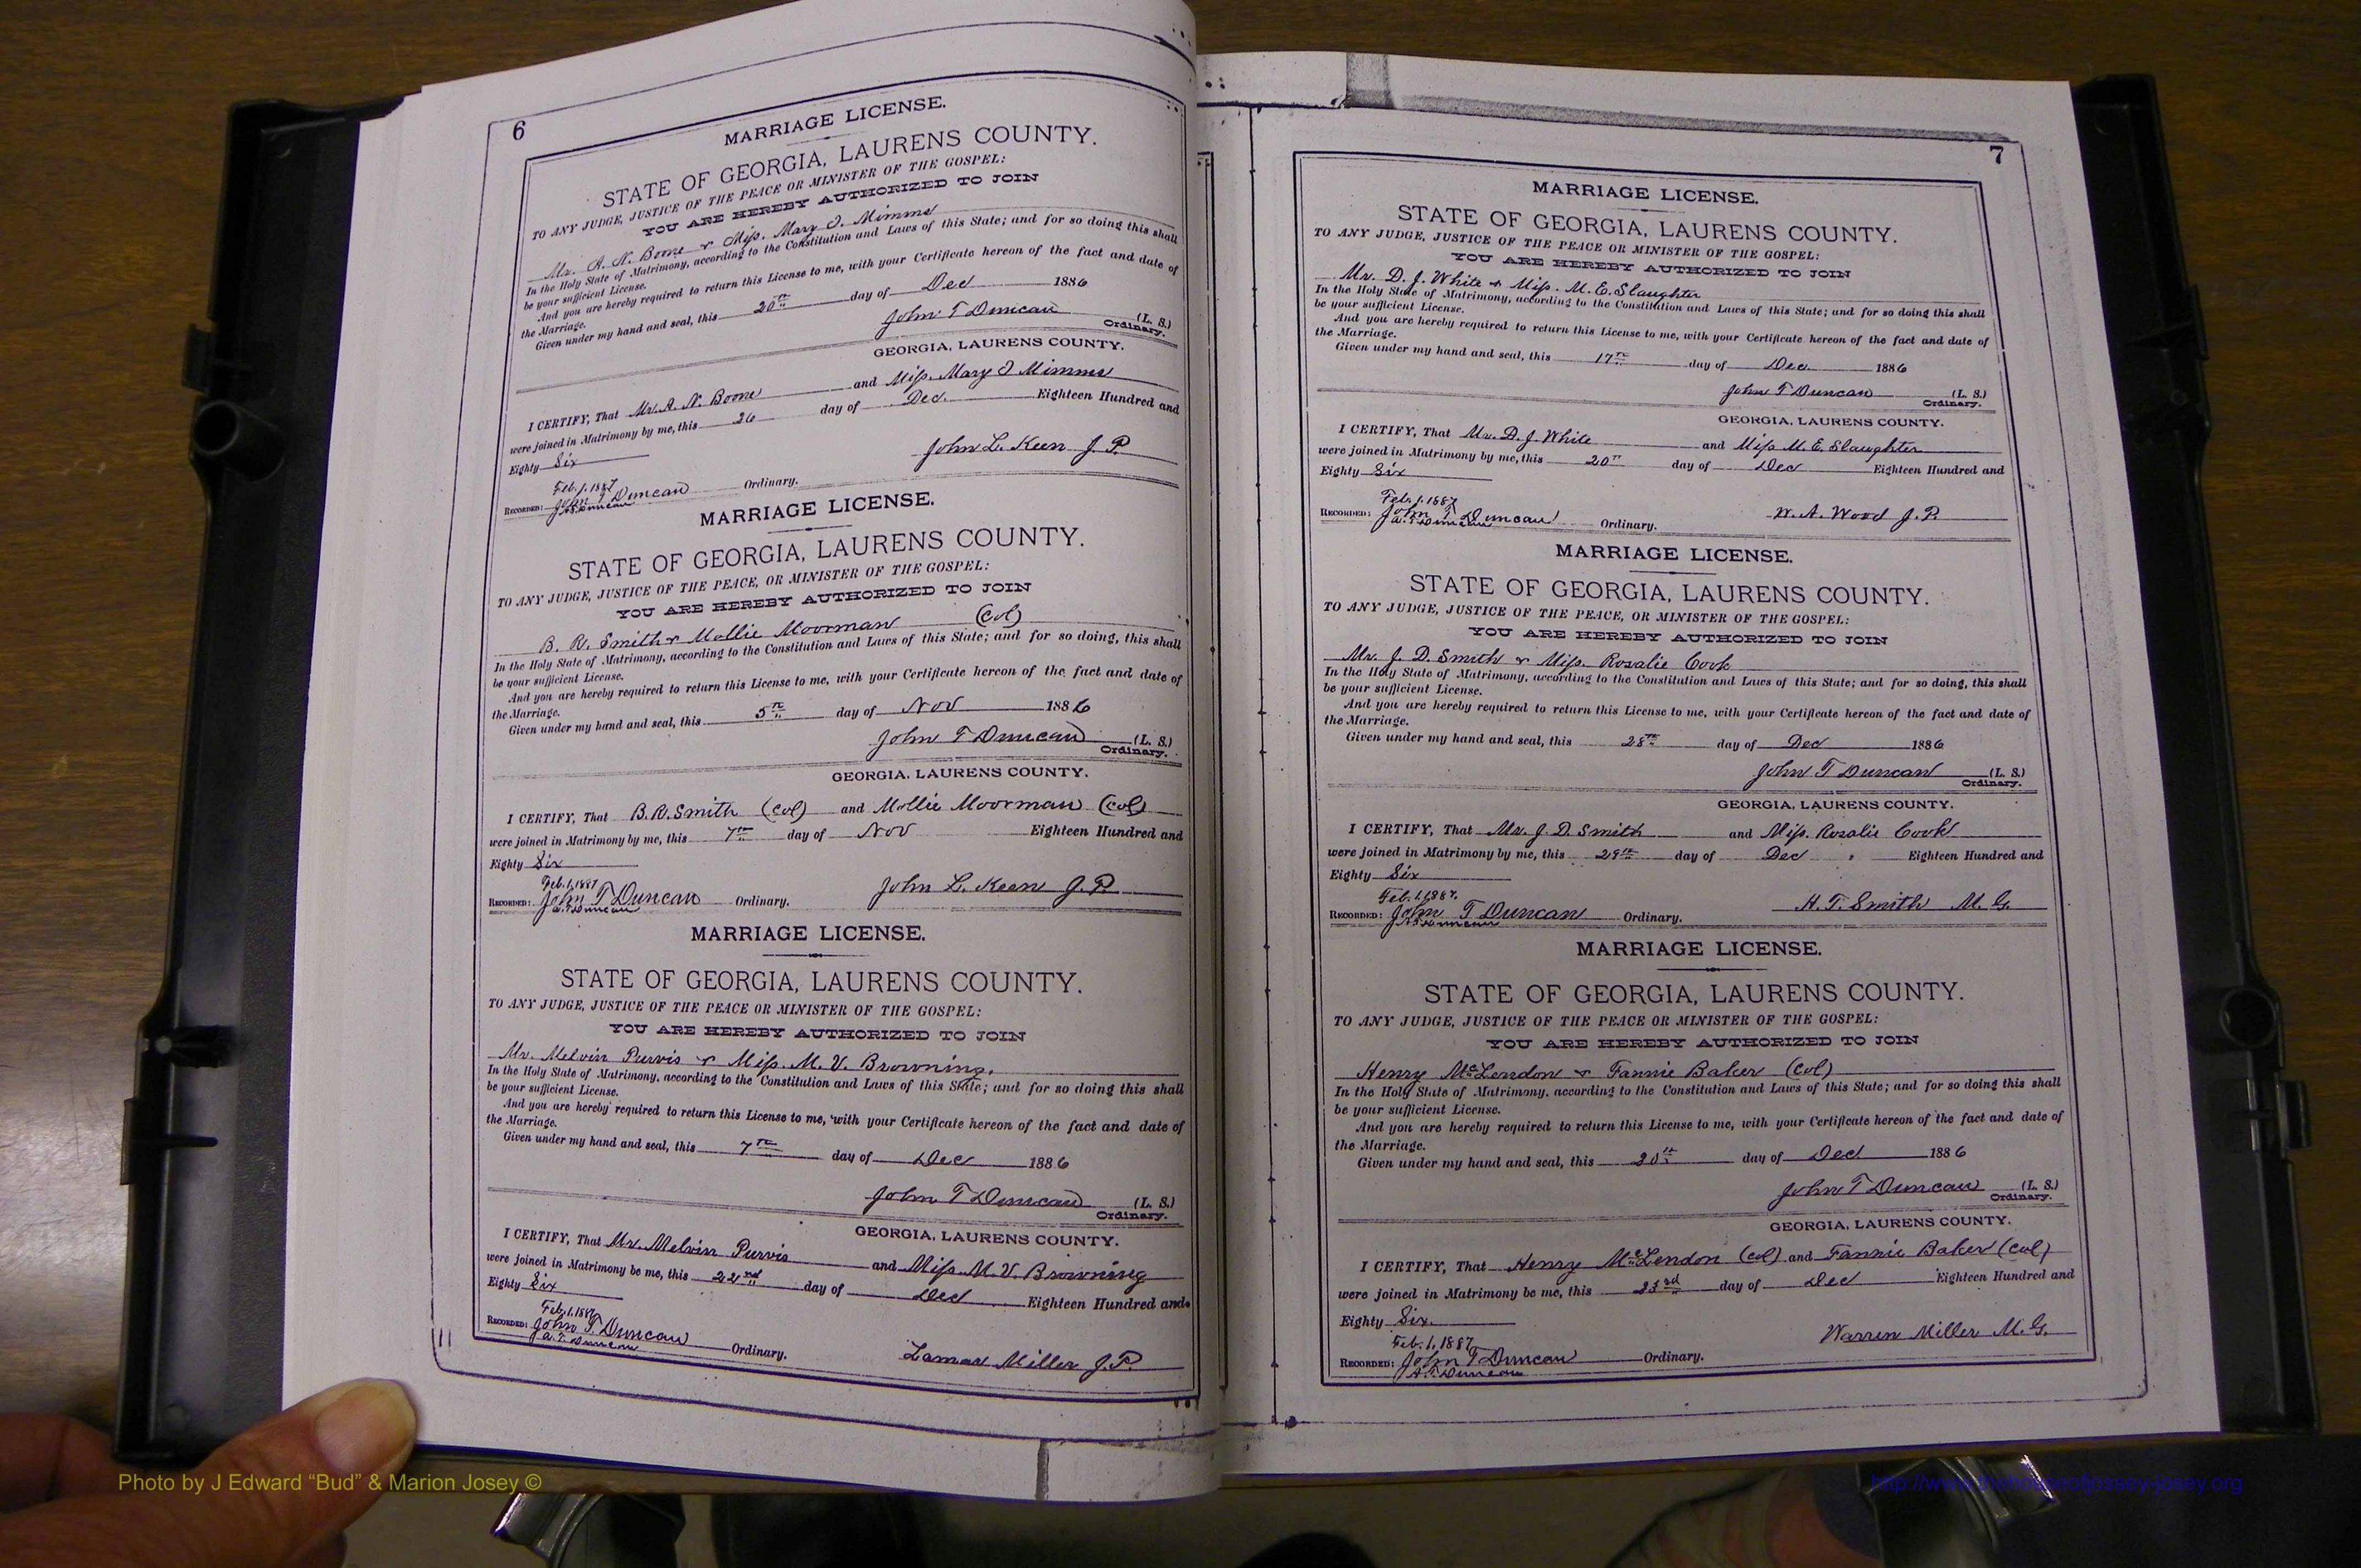 6
MARRIAGE LICENSE.
STATE OF GEORGIA, LAURENS COUNTY.
TO ANY JUDGE, JUSTICE OF THE PEACE OR MINISTER OF THE GOSPEL:
YOU ARE HEREBY AUTHORIZED TO JOIN
Mr. A. N. Boone & Miss. Mary J. Mimms
In the Holy State of Matrimony, according to the Constitution and Laws of this State; and for so doing this shall
be your sufficient License.
And you are hereby required to return this License to me, with your Certificate hereon of the fact and date of
the Marriage.
Given under my hand and seal, this 20th day of Dec 1886
John T Duncan (L. S.)
Ordinary.
GEORGIA, LAURENS COUNTY.
I CERTIFY, That Mr. A. N. Boone and Miss. Mary J Mimms
were joined in Matrimony by me, this 26 day of Dec. Eighteen Hundred and
Eighty Six
John L. Keen J. P.
Feb. 1. 1887
RECORDED: John T Duncan Ordinary.
MARRIAGE LICENSE.
STATE OF GEORGIA, LAURENS COUNTY.
TO ANY JUDGE, JUSTICE OF THE PEACE, OR MINISTER OF THE GOSPEL:
YOU ARE HEREBY AUTHORIZED TO JOIN
B. R. Smith & Mollie Moorman (Col)
In the Holy State of Matrimony, according to the Constitution and Laws of this State; and for so doing, this shall
be your sufficient License.
And you are hereby required to return this License to me, with your Certificate hereon of the fact and date of
the Marriage.
Given under my hand and seal, this 5th day of Nov 1886
John T Duncan (L. S.)
Ordinary.
GEORGIA, LAURENS COUNTY.
I CERTIFY, That B. R. Smith (Col) and Mollie Moorman (Col)
were joined in Matrimony by me, this 7th day of Nov Eighteen Hundred and
Eighty Six
Feb. 1, 1887
John L. Keen J. P.
RECORDED: John T Duncan Ordinary.
A. T. Duncan
MARRIAGE LICENSE.
STATE OF GEORGIA, LAURENS COUNTY.
TO ANY JUDGE, JUSTICE OF THE PEACE OR MINISTER OF THE GOSPEL:
YOU ARE HEREBY AUTHORIZED TO JOIN
Mr. Melvin Purvis & Miss. M. V. Browning.
In the Holy State of Matrimony, according to the Constitution and Laws of this State; and for so doing this shall
be your sufficient License.
And you are hereby required to return this License to me, with your Certificate hereon of the fact and date of
the Marriage.
Given under my hand and seal, this 7th day of Dec 1886
John T Duncan (L. S.)
Ordinary.
GEORGIA, LAURENS COUNTY.
I CERTIFY, That Mr. Melvin Purvis and Miss. M. V. Browning
were joined in Matrimony be me, this 22nd day of Dec Eighteen Hundred and
Eighty Six
Feb. 1, 1887
RECORDED: John T. Duncan Ordinary.
A. T. Duncan
Lamar Miller J. P.
7
MARRIAGE LICENSE.
STATE OF GEORGIA, LAURENS COUNTY.
TO ANY JUDGE, JUSTICE OF THE PEACE OR MINISTER OF THE GOSPEL:
YOU ARE HEREBY AUTHORIZED TO JOIN
Mr. D. J. White & Miss. M. E. Slaughter
In the Holy State of Matrimony, according to the Constitution and Laws of this State; and for so doing this shall
be your sufficient License.
And you are hereby required to return this License to me, with your Certificate hereon of the fact and date of
the Marriage.
Given under my hand and seal, this 17th day of Dec. 1886
John T Duncan (L. S.)
Ordinary.
GEORGIA, LAURENS COUNTY.
I CERTIFY, That Mr. D. J. White and Miss M. E. Slaughter
were joined in Matrimony by me, this 20th day of Dec Eighteen Hundred and
Eighty Six
Feb. 1. 1887
RECORDED: John T Duncan Ordinary.
A. T. Duncan
W. A. Wood J. P.
MARRIAGE LICENSE.
STATE OF GEORGIA, LAURENS COUNTY.
TO ANY JUDGE, JUSTICE OF THE PEACE, OR MINISTER OF THE GOSPEL:
YOU ARE HEREBY AUTHORIZED TO JOIN
Mr. J. D. Smith & Miss. Rosalie Cook
In the Holy State of Matrimony, according to the Constitution and Laws of this State; and for so doing, this shall
be your sufficient License.
And you are hereby required to return this License to me, with your Certificate hereon of the fact and date of
the Marriage.
Given under my hand and seal, this 28th day of Dec 1886
John T Duncan (L. S.)
Ordinary.
GEORGIA, LAURENS COUNTY.
I CERTIFY, That Mr. J. D. Smith and Miss. Rosalie Cook
were joined in Matrimony by me, this 29th day of Dec Eighteen Hundred and
Eighty Six
Feb. 1, 1887.
H. T. Smith M. G.
RECORDED: John T Duncan Ordinary.
A. T. Duncan
MARRIAGE LICENSE.
STATE OF GEORGIA, LAURENS COUNTY.
TO ANY JUDGE, JUSTICE OF THE PEACE OR MINISTER OF THE GOSPEL:
YOU ARE HEREBY AUTHORIZED TO JOIN
Henry McLendon & Fannie Baker (Col)
In the Holy State of Matrimony, according to the Constitution and Laws of this State; and for so doing this shall
be your sufficient License.
And you are hereby required to return this License to me, with your Certificate hereon of the fact and date of
the Marriage.
Given under my hand and seal, this 20th day of Dec 1886
John T Duncan (L. S.)
Ordinary.
GEORGIA, LAURENS COUNTY.
I CERTIFY, That Henry McLendon (Col) and Fannie Baker (Col)
were joined in Matrimony be me, this 23rd day of Dec Eighteen Hundred and
Eighty Six.
Warren Miller M. G.
Feb. 1, 1887
RECORDED: John T Duncan Ordinary.
A. T. Duncan
Photo by J Edward “Bud” & Marion Josey ©
http://www.thehouseofjossey-josey.org